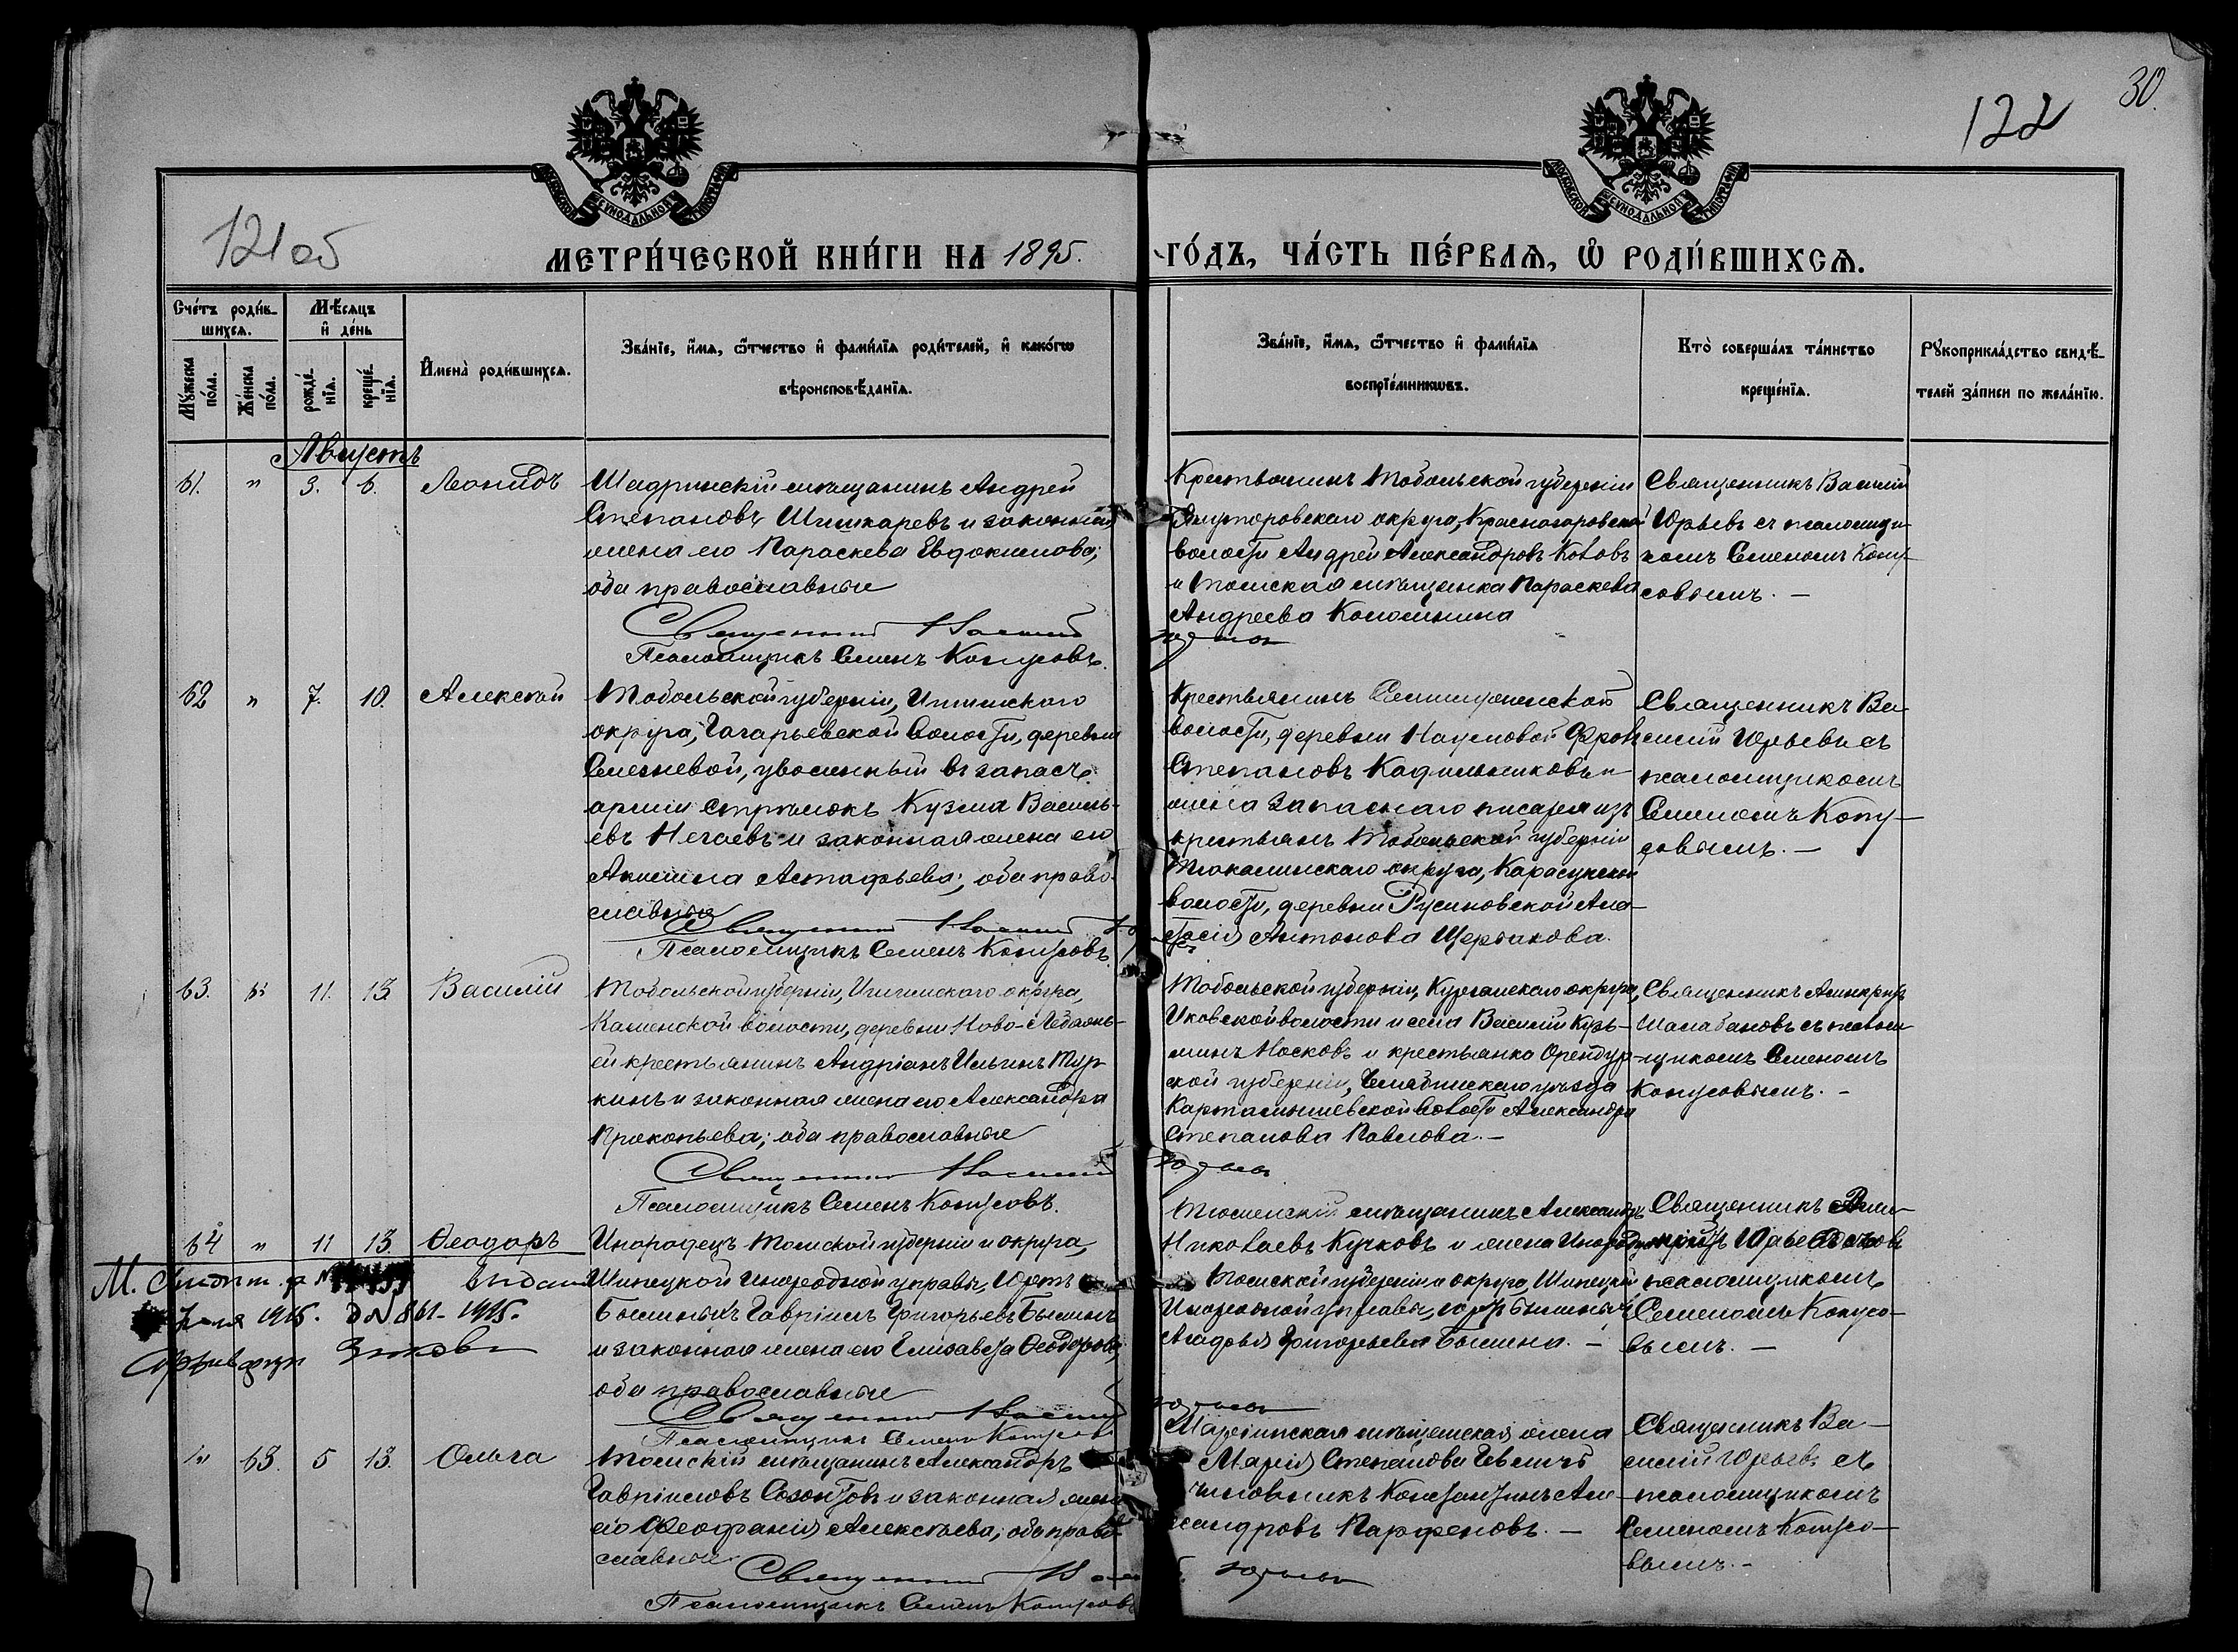 30.
122
121 об
МОСКОВСКОЙ СѴНОДАЛЬНОЙ ТИПОГРАФІИ
МОСКОВСКОЙ СѴНОДАЛЬНОЙ ТИПОГРАФІИ
МЕТРИ́ЧЕСКОЙ КНИ́ГИ НА 1895.
ГО́ДЪ, ЧА́СТЬ ПЕ́РВАѦ, Ѡ҆ РОДИ́ВШИХСѦ.
Сче́тъ роди́в-
шихсѧ.
Мꙋ́жеска по́ла.
Же́нска по́ла.
Мѣ́сѧцъ
и҆ де́нь
рожде́-
нїѧ.
креще́-
нїѧ.
И҆мена̀ роди́вшихсѧ.
Зва́нїе, и҆́мѧ, ѻ҆́тчество и҆ фами́лїѧ роди́телей, и҆ како́гѡ
вѣроисповѣ́данїѧ.
Зва́нїе, и҆́мѧ, ѻ҆́тчество и҆ фами́лїѧ
воспрїе́мникѡвъ.
Кто̀ соверша́лъ та́инство
креще́нїѧ.
Рꙋкоприкла́дство свидѣ́-
телей за́писи по жела́нїю.
Августъ
61. " 3. 6. Леонидъ
Шадринскій мѣщанинъ Андрей
Степановъ Шишкаревъ и законная
жена его Параскева Евдокимова;
оба православные
Священникъ Василій Юрьевъ
Псаломщикъ Семенъ Конусовъ.
Крестьянинъ Тобольской губерніи
Ялуторовскаго округа, Красногоровской
волости Андрей Александровъ Котовъ
и Томская мѣщанка Параскева
Андреева Коломнина
Священникъ Василій
Юрьевъ съ псаломщи-
комъ Семеномъ Кону-
совымъ. –
62 " 7. 10. Алексѣй
Тобольской губерніи, Ишимскаго
округа, Гагарьевской волости, деревни
Селезневой, уволенный въ запасъ
арміи стрѣлокъ Кузма Василь-
евъ Нечаевъ и законная жена его
Акилина Астафьева; оба право-
славные
Священникъ Василій
Псаломщикъ Семенъ Конусовъ
Крестьянинъ
волости, деревни Наумовой
Степановъ Кадильниковъ и
жена запаснаго писаря изъ
крестьянъ Тобольской губерніи
Тюкалинскаго округа, Карасукской
волости, деревни Русиновской Ана-
стасія Антонова Щербакова.
Священникъ Ва-
силій Юрьевъ съ
псаломщикомъ
Семеномъ Кону-
совымъ. –
63. " 11. 13. Василій
Тобольской губерніи, Ишимскаго округа,
Каменской волости, деревни Ново-Лебяжь-
ей крестьянинъ Андріанъ Ильинъ Тур-
кинъ и законная жена его Александра
Прокопьева; оба православные
Священникъ Василій Юрьевъ
Псаломщикъ Семенъ Конусовъ.
Тобольской губерніи, Курганскаго округа,
Иковской волости и села Василій Кузь-
минъ Носковъ и крестьянка Оренбур-
ской губерніи, Челябинскаго уѣзда
волости Александра
Степанова Павлова. –
Священникъ Асинкритъ
Шалабановъ съ псалом-
щикомъ Семеномъ
Конусовымъ. –
64 " 11 13. Ѳеодоръ
Инородецъ Томской губерніи и округа,
Шипецкой инородной управы, юртъ
Басминыхъ Гавріилъ Григорьевъ Басминъ
и законная жена его Елисавета Ѳеодорова;
оба православные
Священникъ Василій Юрьевъ
Псаломщикъ Семенъ Конусовъ
Томскій мѣщанинъ Александръ
Николаевъ Кучковъ и жена инородца
Томской губерніи и округа, Шипецкой
инородной управы,
Григорьева Басмина. –
Священникъ
псаломщикомъ
Семеномъ Конусо-
вымъ. –
выдано
1915. № 861-1915.
" 63. 5 13. Ольга
Томскій мѣщанинъ Александръ
Гавріиловъ Созонтовъ и законная жена
его Ѳеофанія Алексѣева; оба право-
славные
Священникъ Василій Юрьевъ
Псаломщикъ Семенъ Конусовъ
Маріинская мѣщанская жена
Марія Степанова
чиновникъ Константинъ Але-
ксандровъ Парфеновъ. –
Священникъ Ва-
силій Юрьевъ съ
псаломщикомъ
Семеномъ Конусо-
вымъ. –